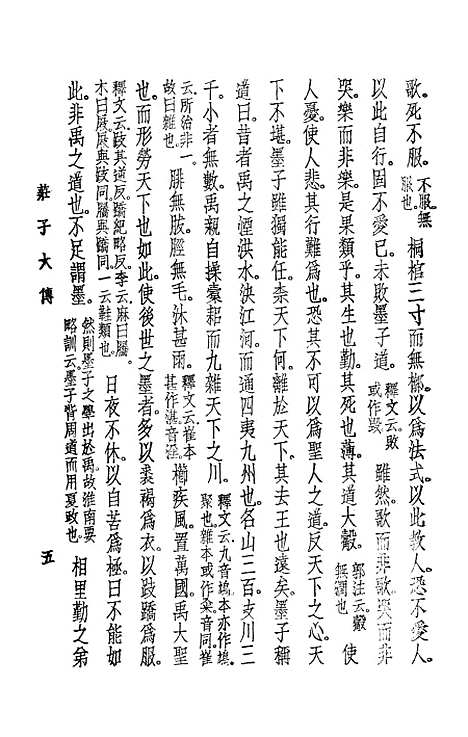 歌。死不服。不服無服也。桐棺三寸而無槨。以爲法式。以此敎人。恐不愛人。
以此自行。固不愛己。未敗墨子道。釋文云敗或作毀雖然。歌而非歌。哭而非
哭。樂而非樂。是果類乎。其生也勤。其死也薄。其道大觳。郭注云觳無潤也使
人憂。使人悲。其行難爲也。恐其不可以爲聖人之道。反天下之心。天
下不堪。墨子雖獨能任。柰天下何。離於天下。其去王也遠矣。墨子稱
道曰。昔者禹之湮洪水。決江河。而通四夷九州也。名山三百。支川三
千。小者無數。禹親自操橐耜。而九雜天下之川。釋文云。九音鳩。本亦作鳩。聚也。雜本或作籴。音同。崔
云。所治非一。故曰雜也。腓無胈。脛無毛。沐甚雨。釋文云。崔本甚作湛。音淫櫛疾風。置萬國。禹大聖
也。而形勞天下也如此。使後世之墨者。多以裘褐爲衣。以跂蹻爲服。
釋文云。跂其逆反。蹻紀略反。李云。麻曰屩。木曰屐。屐與跂同。屩與蹻同。一云鞋類也。日夜不休。以自苦爲極。曰不能如
此。非禹之道也。不足謂墨。然則墨子之學出於禹。故淮南要略訓云。墨子背周道而用夏政也。相里勤之弟
莊子大傳
五